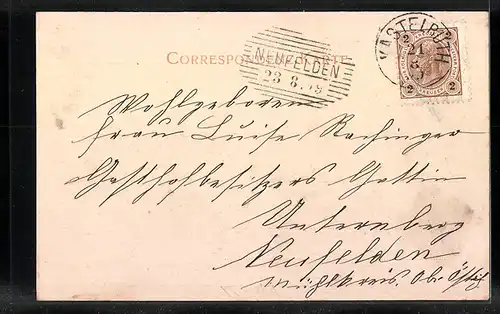 CORRESPONDENZ-KARTE
NEUFELDEN
23.8.99
KASTELRUTH
21
8
2 2
Wohlgeboren
Frau Luise Rachinger
Gasthofbesitzers Gattin
Unternberg
Neufelden
Mühlkreis. Ob. Östrch